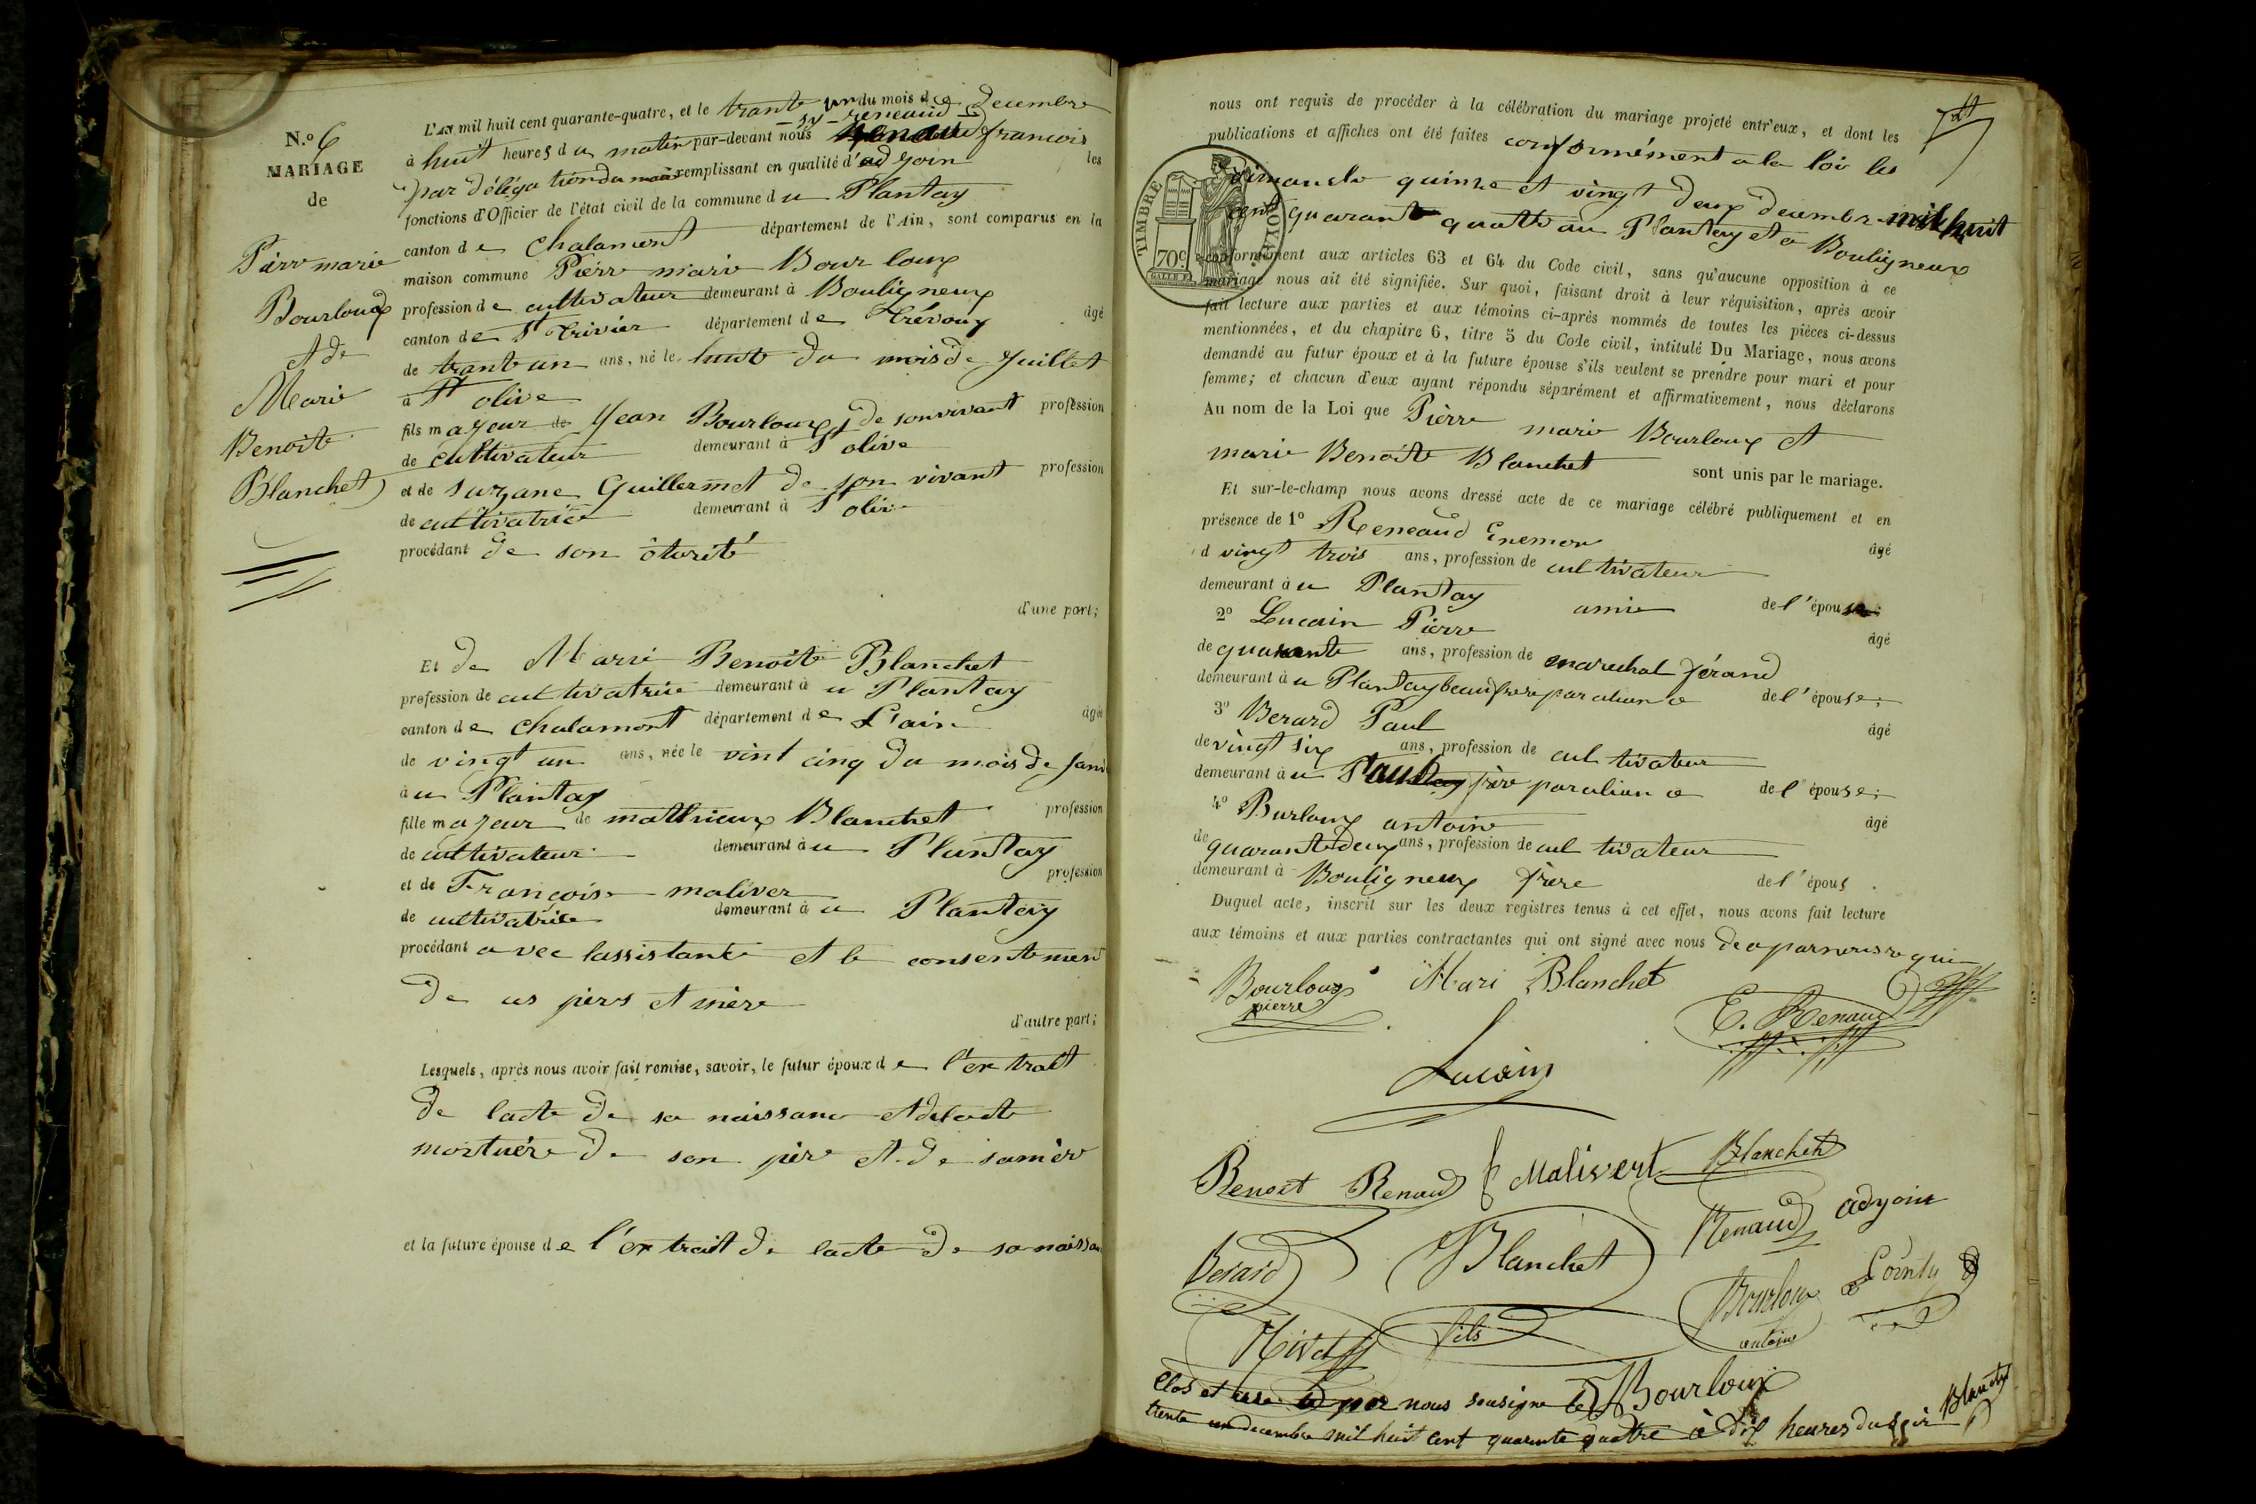 N.º 6
MARIAGE
de
Pierre marie
Bourloux
et de
Marie
Benoite
Blanchet
L'An mil huit cent quarante-quatre, et le trante un du mois de decembre
à huit heures du matin par-devant nous reneaud francois
par délégation du maire remplissant en qualité d'adjoin les
fonctions d'Officier de l'état civil de la commune du Plantay
canton de Chalamont département de l'Ain, sont comparus en la
maison commune Pierre marie Bourloux
profession de cultivateur demeurant à Bouligneux
canton de St Trivier département de Trévoux âgé
de trante un ans, né le huit du mois de Juillet
à St olive
fils majeur de Jean Bourloux de son vivant profession
de cultivateur demeurant à St olive
et de Suzane Guillermet de son vivant profession
de cultivatrice demeurant à St olive
procédant de son ôtorité
d'une part;
Et de Marie Benoite Blanchet
profession de cultivatrice demeurant à u Plantay
canton de Chalamont département de L'ain âgée
de vingt un ans, née le vint cinq du mois de Janv
à u Plantay
fille majeur de matthieux Blanchet profession
de cultivateur demeurant à u Plantay
et de Françoise maliver profession
de cultivatrice demeurant à u Plantay
procédant avec lassistante et le consentement
de ces pers et mère
d'autre part;
Lesquels, après nous avoir fait remise, savoir, le futur époux de l'extrait
de lacte de sa naissance et de lacte
mortuére de son père et de samère
et la future épouse de l'extrait de lacte de sa naissan
nous ont requis de procéder à la célébration du mariage projeté entr'eux, et dont les
publications et affiches ont été faites conformément a la loi les
dimanche quinze et vingt deux decembre mil huit
cent quarante quatre au Plantay et a Bouligneux
TIMBRE ROYAL
70c
conformément aux articles 63 et 64 du Code civil, sans qu'aucune opposition à ce
mariage nous ait été signifiée. Sur quoi, faisant droit à leur réquisition, après avoir
fait lecture aux parties et aux témoins ci-après nommés de toutes les pièces ci-dessus
mentionnées, et du chapitre 6, titre 5 du Code civil, intitulé Du Mariage, nous avons
demandé au futur époux et à la future épouse s'ils veulent se prendre pour mari et pour
femme; et chacun d'eux ayant répondu séparément et affirmativement, nous déclarons
Au nom de la Loi que Pièrre marie Bourloux et
marie Benoite Blanchet sont unis par le mariage.
Et sur-le-champ nous avons dressé acte de ce mariage célébré publiquement et en
présence de 1º Reneaud Enemon âgé
d vingt trois ans, profession de cultivateur
demeurant à u Plantay amie de l'épouse;
2º Lucain Pierre âgé
de quarante ans, profession de marechal férand
demeurant à u Plantay beaufrere par aliance de l'épouse;
3º Berard Paul âgé
de vingt six ans, profession de cultivateur
demeurant à u Plantay frère par aliance de l'épouse;
4º Burloux antoine âgé
de quarante deux ans, profession de cultivateur
demeurant à Bouligneux frère de l'époux.
Duquel acte, inscrit sur les deux registres tenus à cet effet, nous avons fait lecture
aux témoins et aux parties contractantes qui ont signé avec nous de a par nous requi
Bourloux pierre
Mari Blanchet
E. Renaud
Lucain
Benoit Renaud
f Malivert
Blanchet
Berard
Blanchet fils
Renaud adjoin
Bourloux antoine
Bourloux
Clos et par nous sousigne le
trente un decembre mil huit cent quarente quatre à dix heures du soir
Blanchet